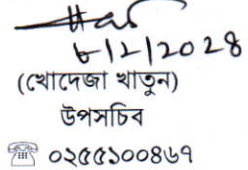 ৮/১২/২০২৪
(খোদেজা খাতুন)
উপসচিব
☏ ০২৫৫১০০৪৬৭